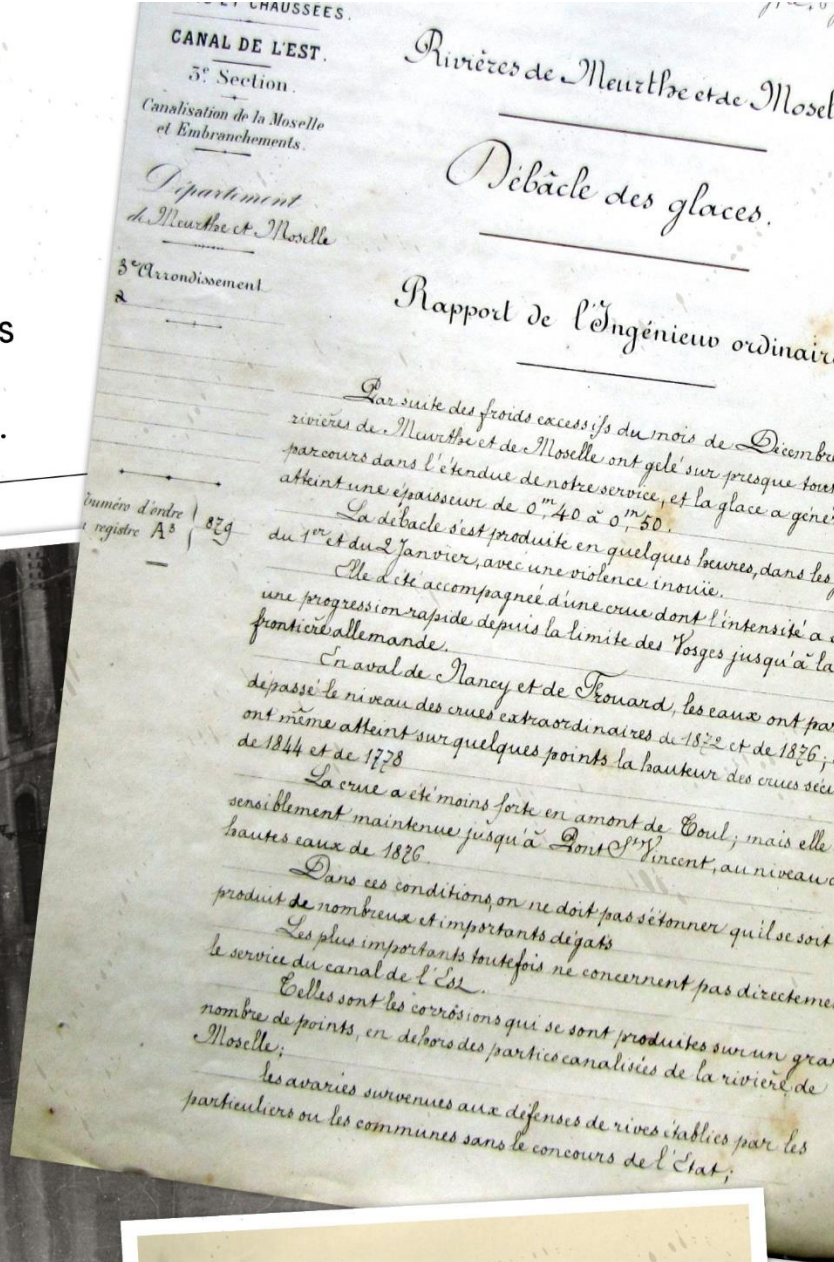 S
.
ET CHAUSSÉES.
CANAL DE L'EST.
3e Section.
Canalisation de la Moselle
et Embranchements.
Département
de Meurthe et Moselle
3e Arrondissement
Numéro d'ordre
registre A3
879
Rivières de Meurthe et de Mosel
Débâcle des glaces.
Rapport de l'Ingénieur ordinaire
Par suite des froids excessifs du mois de Décembre
rivières de Meurthe et de Moselle ont gelé sur presque tout
parcours dans l'étendue de notre service, et la glace a géné
atteint une épaisseur de 0m,40 à 0m,50.
La débacle s'est produite en quelques heures, dans les
du 1er et du 2 Janvier, avec une violence inouïe.
Elle a été accompagnée d'une crue dont l'intensité a
une progression rapide depuis la limite des Vosges jusqu'à la
frontière allemande.
En aval de Nancy et de Frouard, les eaux ont par
dépassé le niveau des crues extraordinaires de 1872 et de 1876;
ont même atteint sur quelques points la hauteur des crues sécu
de 1844 et de 1778
La crue a été moins forte en amont de Toul; mais elle
sensiblement maintenue jusqu'à Pont St Vincent, au niveau
hautes eaux de 1876.
Dans ces conditions, on ne doit pas s'étonner qu'il se soit
produit de nombreux et importants dégats
Les plus importants toutefois ne concernent pas directeme
le service du canal de l'Est.
Telles sont les corrosions qui se sont produites sur un gra
nombre de points, en dehors des parties canalisées de la rivière de
Moselle;
les avaries survenues aux défenses de rives établies par les
particuliers ou les communes sans le concours de l'Etat;